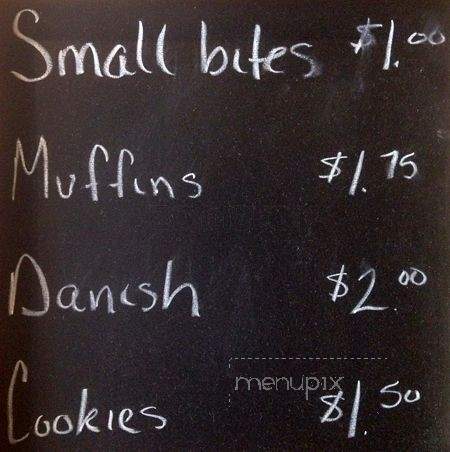 Small bites $1.00
Muffins $1.75
Danish $2.00
menupix
Cookies $1.50